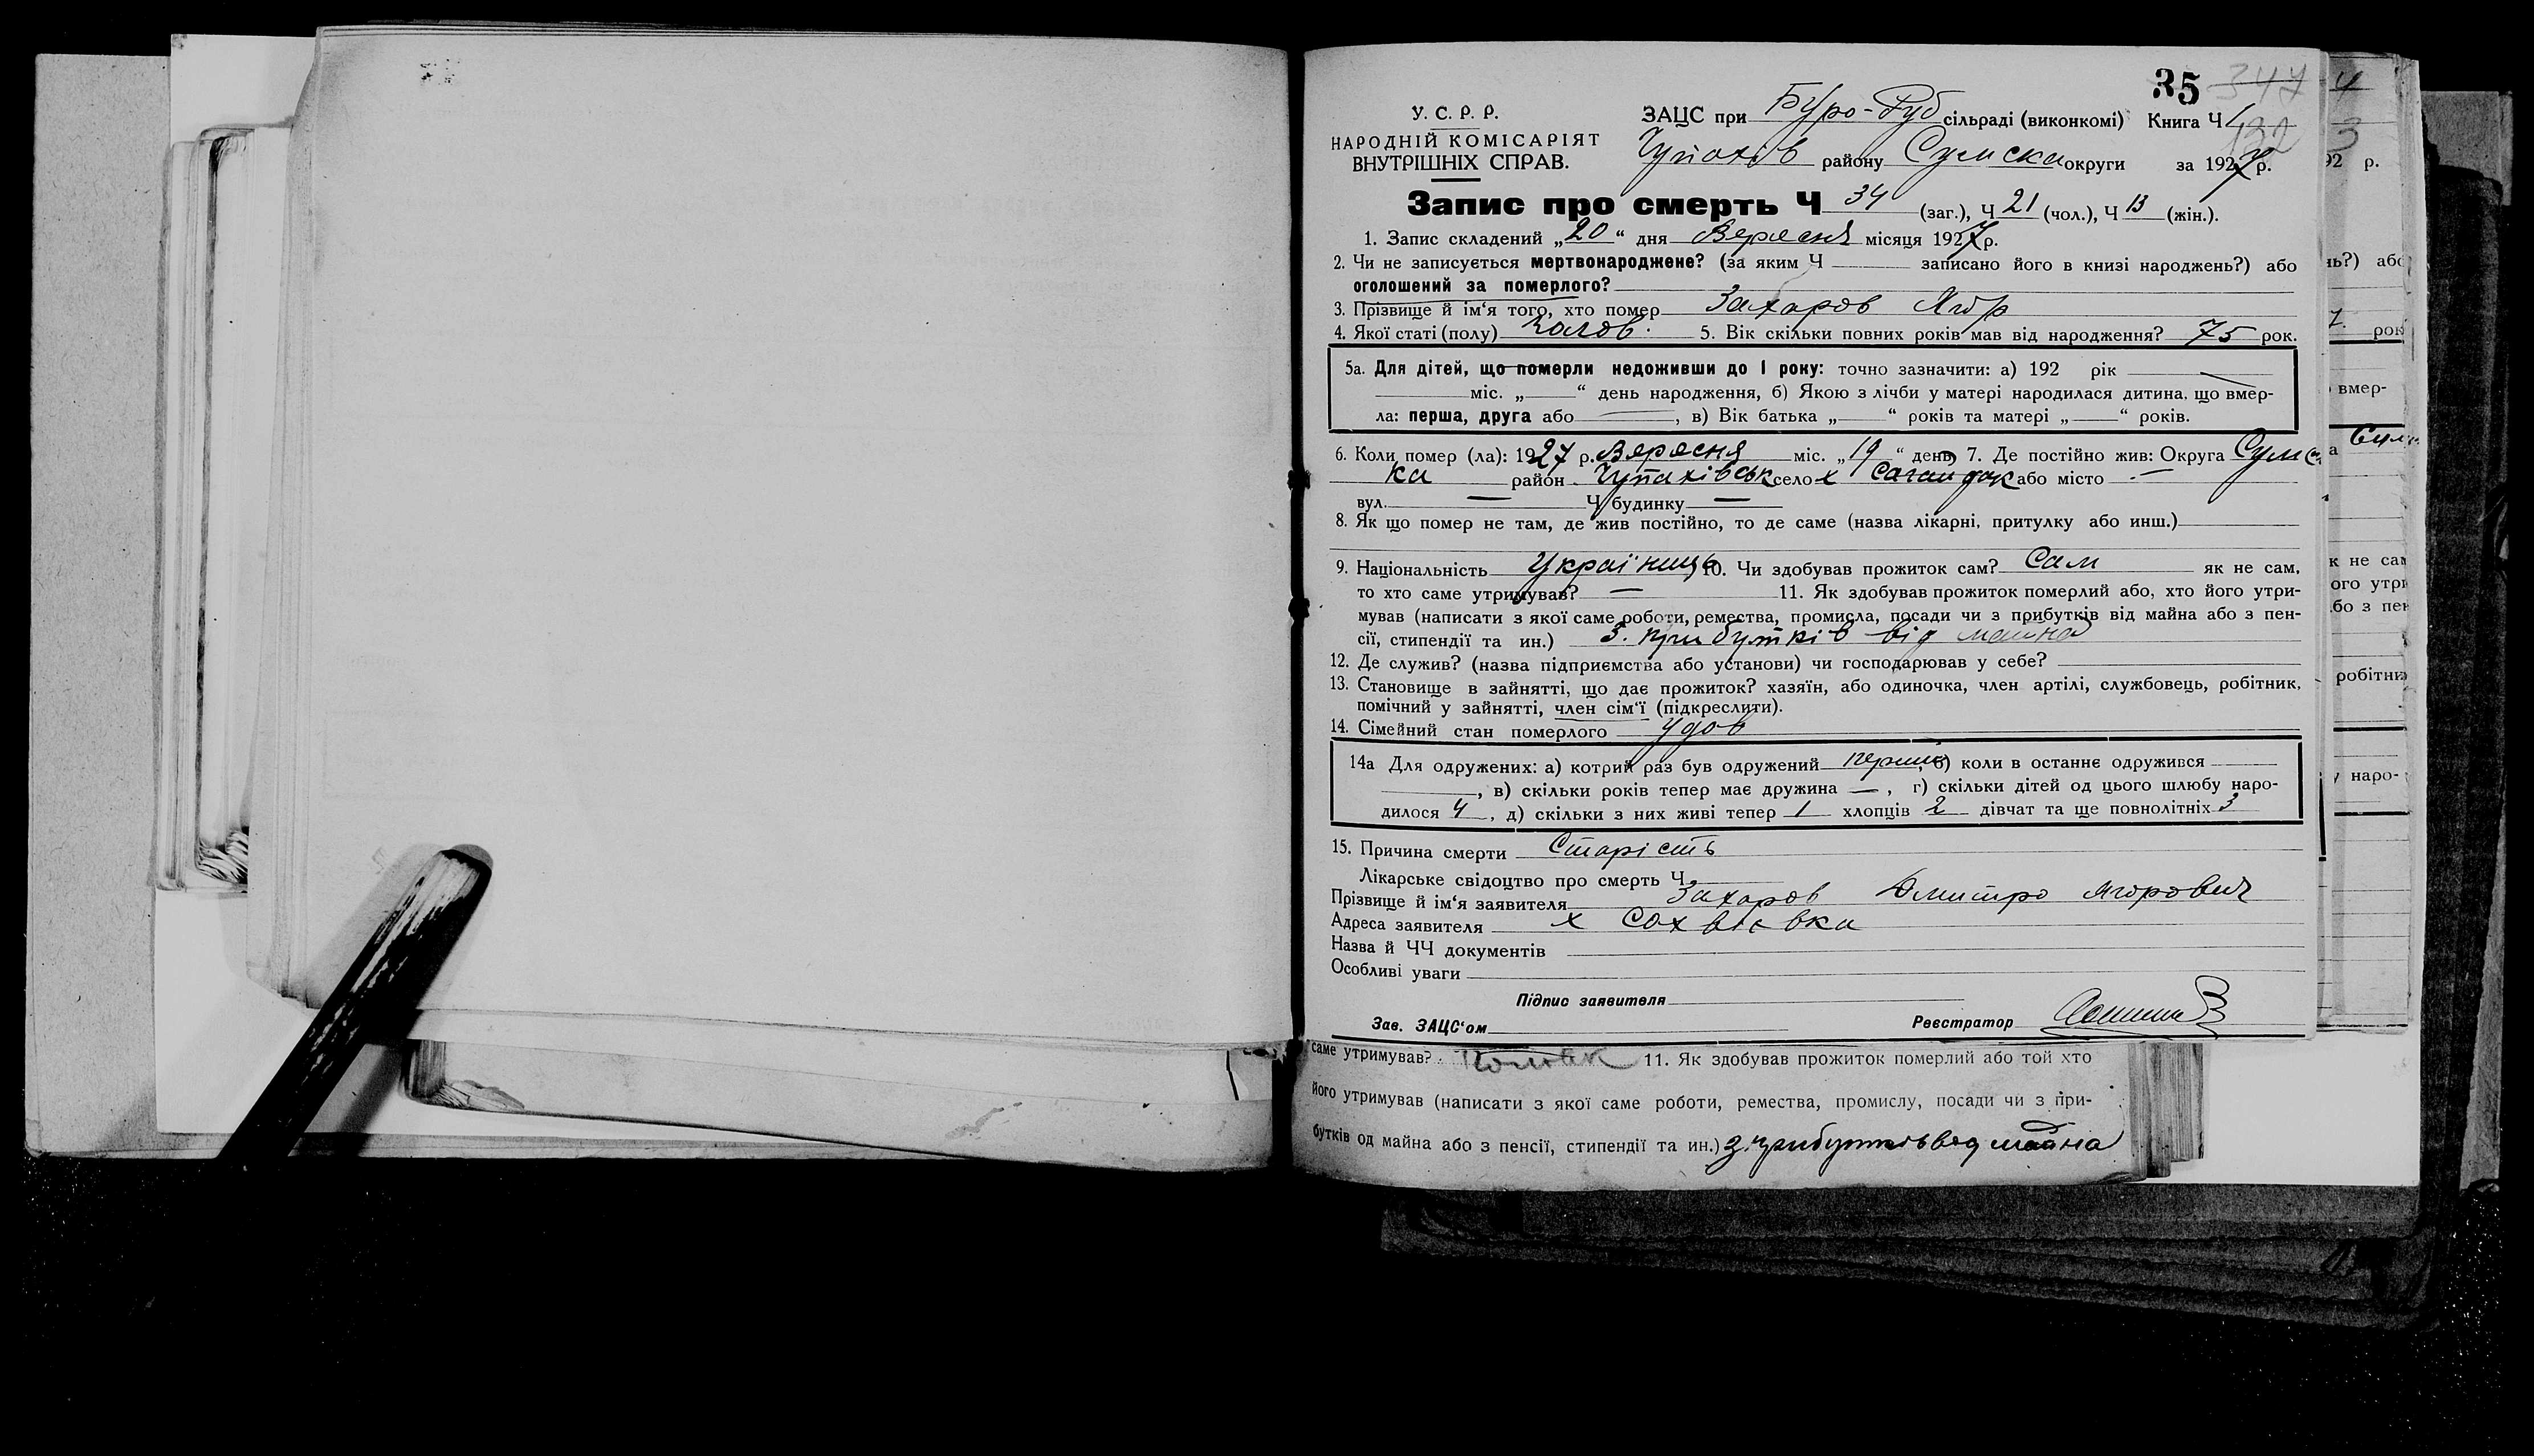 35 347
У. С. Р. Р.
НАРОДНІЙ КОМІСАРІЯТ
ВНУТРІШНІХ СПРАВ.
ЗАЦС при Буро-Руб сільраді (виконкомі) Книга Ч 1
132
Чупахів району Сумска округи за 1927 р.
Запис про смерть Ч 34 (заг.), Ч 21 (чол.), Ч 13 (жін.).
1. Запис складений „20“ дня Вересня місяця 1927 р.
2. Чи не записується мертвонароджене? (за яким Ч записано його в книзі народжень?) або
оголошений за померлого?
3. Прізвище й ім‘я того, хто помер Захаров Ягор
4. Якої статі (полу) чолов. 5. Вік скільки повних років мав від народження? 75 рок.
5а. Для дітей, що померли недоживши до 1 року: точно зазначити: а) 192 рік
міс. „ “ день народження, б) Якою з лічби у матері народилася дитина, що вмер-
ла: перша, друга або , в) Вік батька „ “ років та матері „ “ років.
6. Коли помер (ла): 1927 р. Вересня міс. „19“ день, 7. Де постійно жив: Округа Сумс
ка район Чупахівськ село х Сагайдак або місто —
вул. — Ч будинку —
8. Як що помер не там, де жив постійно, то де саме (назва лікарні, притулку або инш.)
9. Національність Українць 10. Чи здобував прожиток сам? Сам як не сам,
то хто саме утримував? — 11. Як здобував прожиток померлий або, хто його утри-
мував (написати з якої саме роботи, ремества, промисла, посади чи з прибутків від майна або з пен-
сії, стипендії та ин.) З. прибутків від майна
12. Де служив? (назва підприємства або установи) чи господарював у себе?
13. Становище в зайнятті, що дає прожиток? хазяїн, або одиночка, член артілі, службовець, робітник,
помічний у зайнятті, член сім‘ї (підкреслити).
14. Сімейний стан померлого удов
14а Для одружених: а) котрий раз був одружений перший, б) коли в останнє одружився
, в) скільки років тепер має дружина — , г) скільки дітей од цього шлюбу наро-
дилося 4 , д) скільки з них живі тепер 1 хлопців 2 дівчат та ще повнолітніх 3
15. Причина смерти Старість
Лікарське свідоцтво про смерть Ч
Прізвище й ім‘я заявителя Захаров Дмитро Ягорович
Адреса заявителя х Сохвіївка
Назва й ЧЧ документів
Особливі уваги
Підпис заявителя
Зав. ЗАЦС‘ом Реєстратор
саме утримував? 11. Як здобував прожиток померлий або той хто
його утримував (написати з якої саме роботи, ремества, промислу, посади чи з при-
бутків од майна або з пенсії, стипендії та ин.) з прибутків вед майна
4
3
92 р.
нь?) або
рок
вмер-
а Сум
к не сам
ого утри
бо з пен
робітник
у наро-